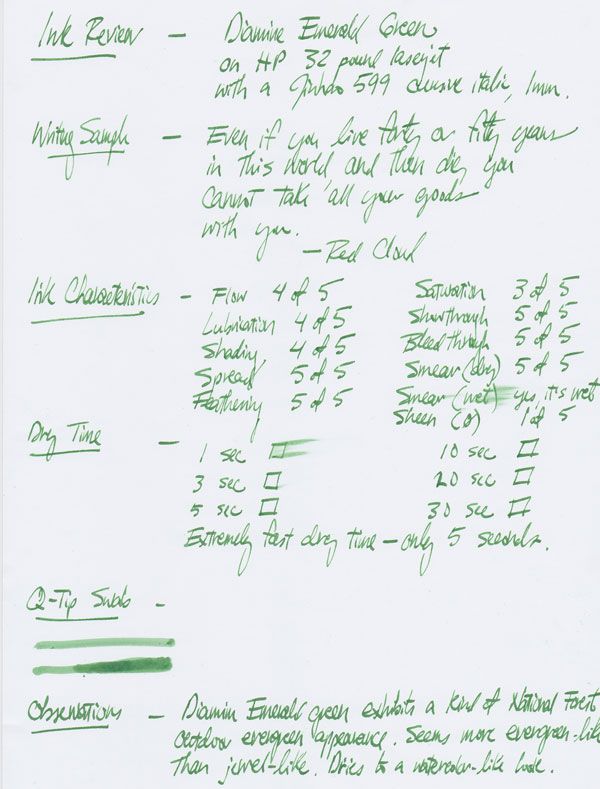 Ink Review — Diamine Emerald Green
on HP 32 pound laserjet
with a Jinhao 599 cursive italic, 1mm.
Writing Sample — Even if you live forty or fifty years
in this world and then die, you
cannot take all your goods
with you.
— Red Cloud
Ink Characteristics — Flow 4 of 5 Saturation 3 of 5
Lubrication 4 of 5 Showthrough 5 of 5
Shading 4 of 5 Bleedthrough 5 of 5
Spread 5 of 5 Smear (dry) 5 of 5
Feathering 5 of 5 Smear (wet) yes, it's wet
Sheen (0) 1 of 5
Dry Time — 1 sec 10 sec
3 sec 20 sec
5 sec 30 sec
Extremely fast drying time — only 5 seconds.
Q-Tip Swabs —
Observations — Diamine Emerald green exhibits a kind of National Forest
outdoor evergreen appearance. Seems more evergreen-like
than jewel-like. Dries to a watercolor-like look.